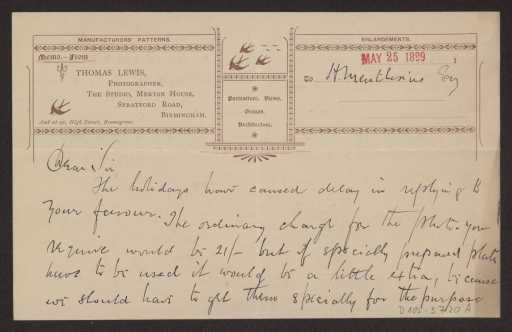 MANUFACTURERS' PATTERNS.
ENLARGEMENTS.
Memo. – From
THOMAS LEWIS,
PHOTOGRAPHER,
THE STUDIO, MERTON HOUSE,
STRATFORD ROAD,
BIRMINGHAM.
And at 90, High Street, Bromsgrove.
Portraiture, Views,
Groups,
Architecture.
MAY 25 1899
TO H Ventherins Esq
Dear Sir
The holidays have caused delay in replying to
your favour. The ordinary charge for the plate you
require would be 21/- but if specially prepared plates
have to be used it would be a little extra, because
we should have to get them specially for the purpose